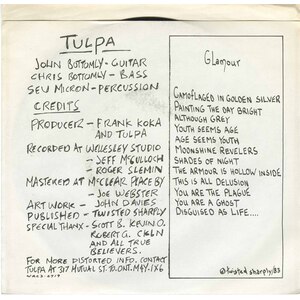 TULPA
JOHN BOTTOMLY - GUITAR
CHRIS BOTTOMLY - BASS
SEV MICRON - PERCUSSION
CREDITS
PRODUCER - FRANK KOKA
AND TULPA
RECORDED AT WELLESLEY STUDIO
- JEFF McCULLOCH
- ROGER SLEMIN
MASTERED AT McCLEAR PLACE BY
- JOE WEBSTER
ART WORK - JOHN DAVIES
PUBLISHED - TWISTED SHARPLY
SPECIAL THANX - SCOTT B. KEVIN O.
ROBERT G. CKLN
AND ALL TRUE
BELIEVERS.
FOR MORE DISTORTED INFO. CONTACT
TULPA AT 317 MUTUAL ST. TO. ONT. M4Y-1X6
Glamour
CAMOFLAGED IN GOLDEN SILVER
PAINTING THE DAY BRIGHT
ALTHOUGH GREY
YOUTH SEEMS AGE
AGE SEEMS YOUTH
MOONSHINE REVELERS
SHADES OF NIGHT
THE ARMOUR IS HOLLOW INSIDE
THIS IS ALL DELUSION
YOU ARE THE PLAGUE
YOU ARE A GHOST
DISGUISED AS LIFE....
© twisted sharply/83